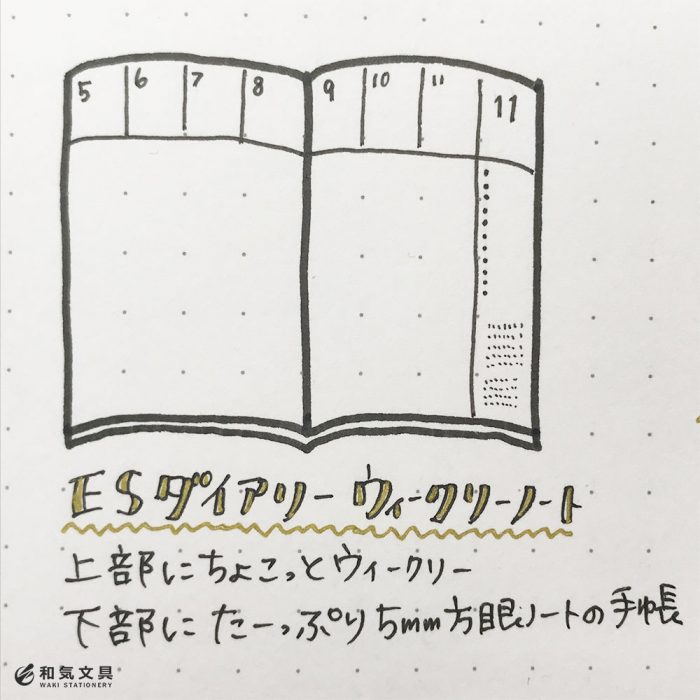 5 6 7 8 9 10 11 11
ESダイアリーウィークリーノート
上部にちょこっとウィークリー
下部にたーっぷり5mm方眼ノートの手帳
和気文具
WAKI STATIONERY